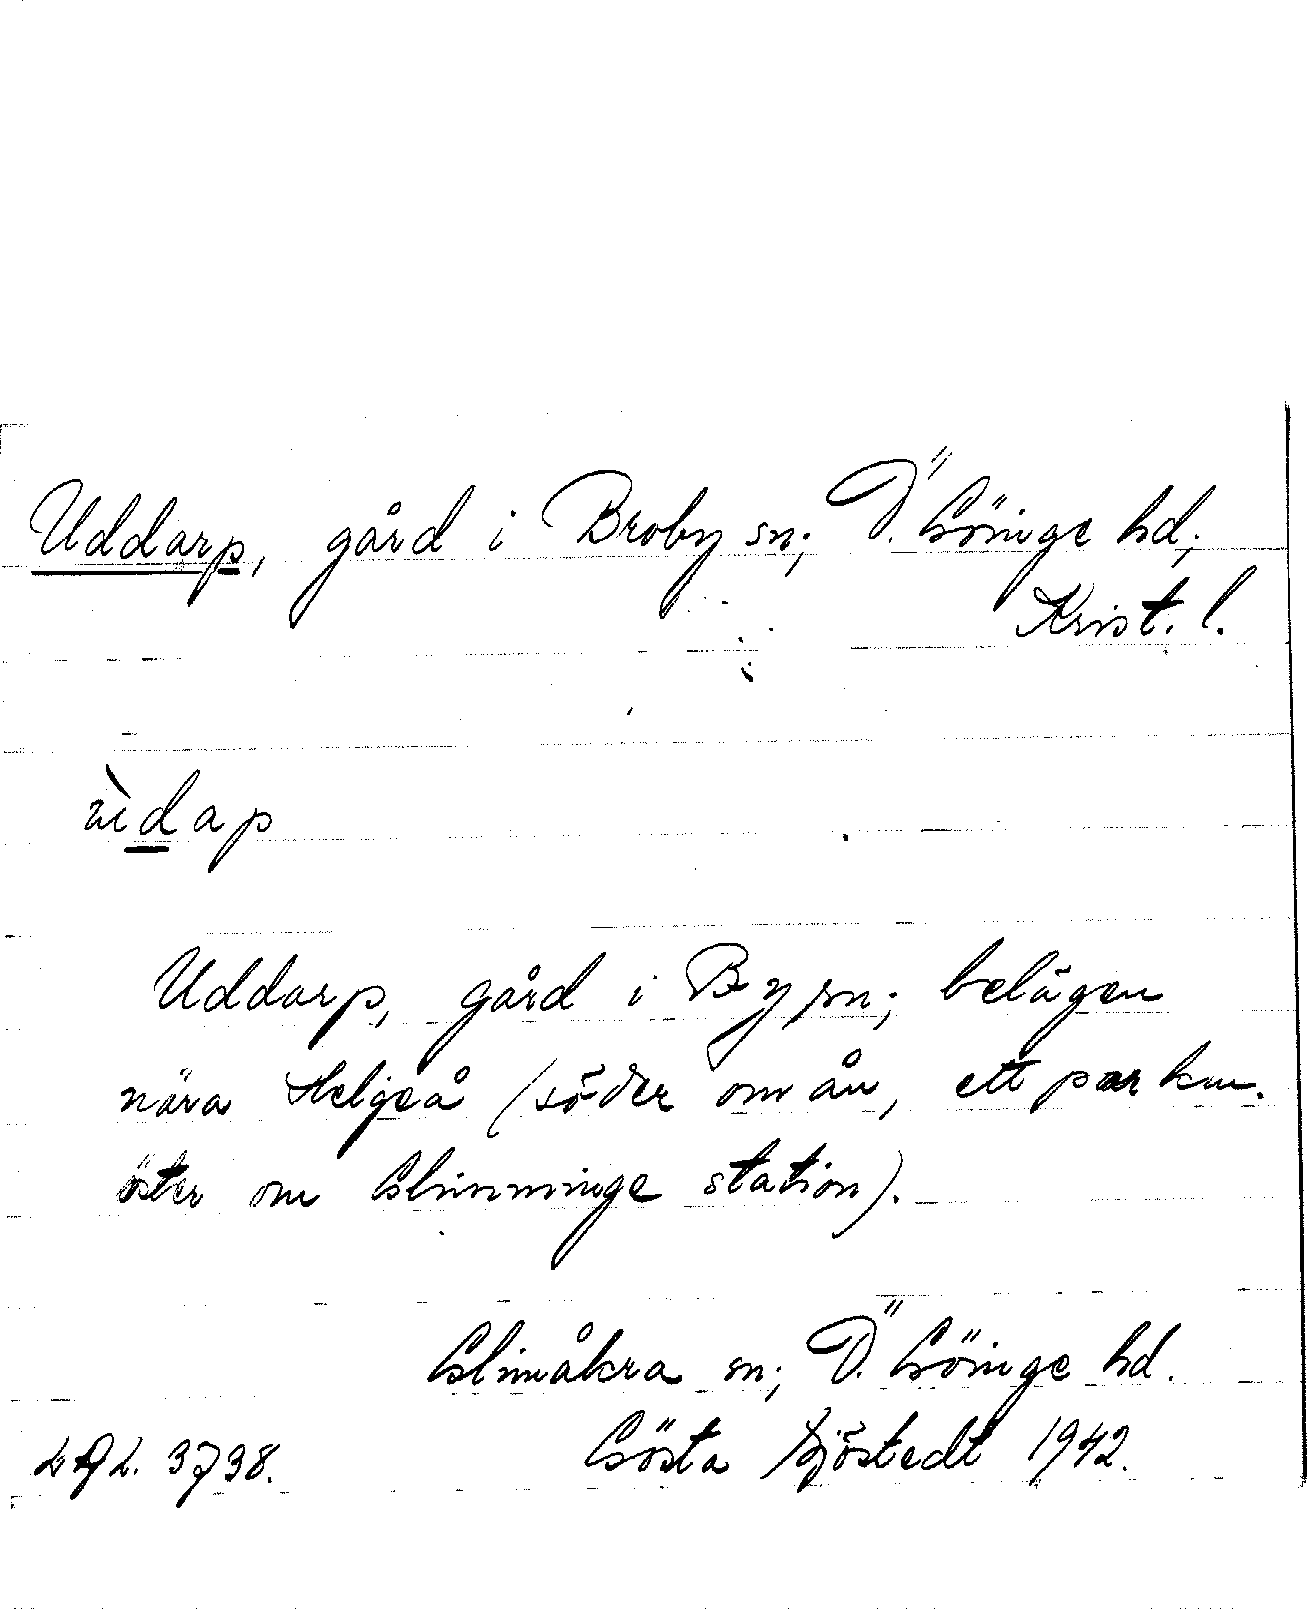 Uddarp, gård i Broby sn; Ö. Göinge hd;
Krist. l.
Uddarp, gård i By sn; belägen
nära Helgeå (söder om ån, ett par km.
öster om Glimminge station).
Glimåkra sn; Ö. Göinge hd.
LAL. 3738. Gösta Sjöstedt 1942.